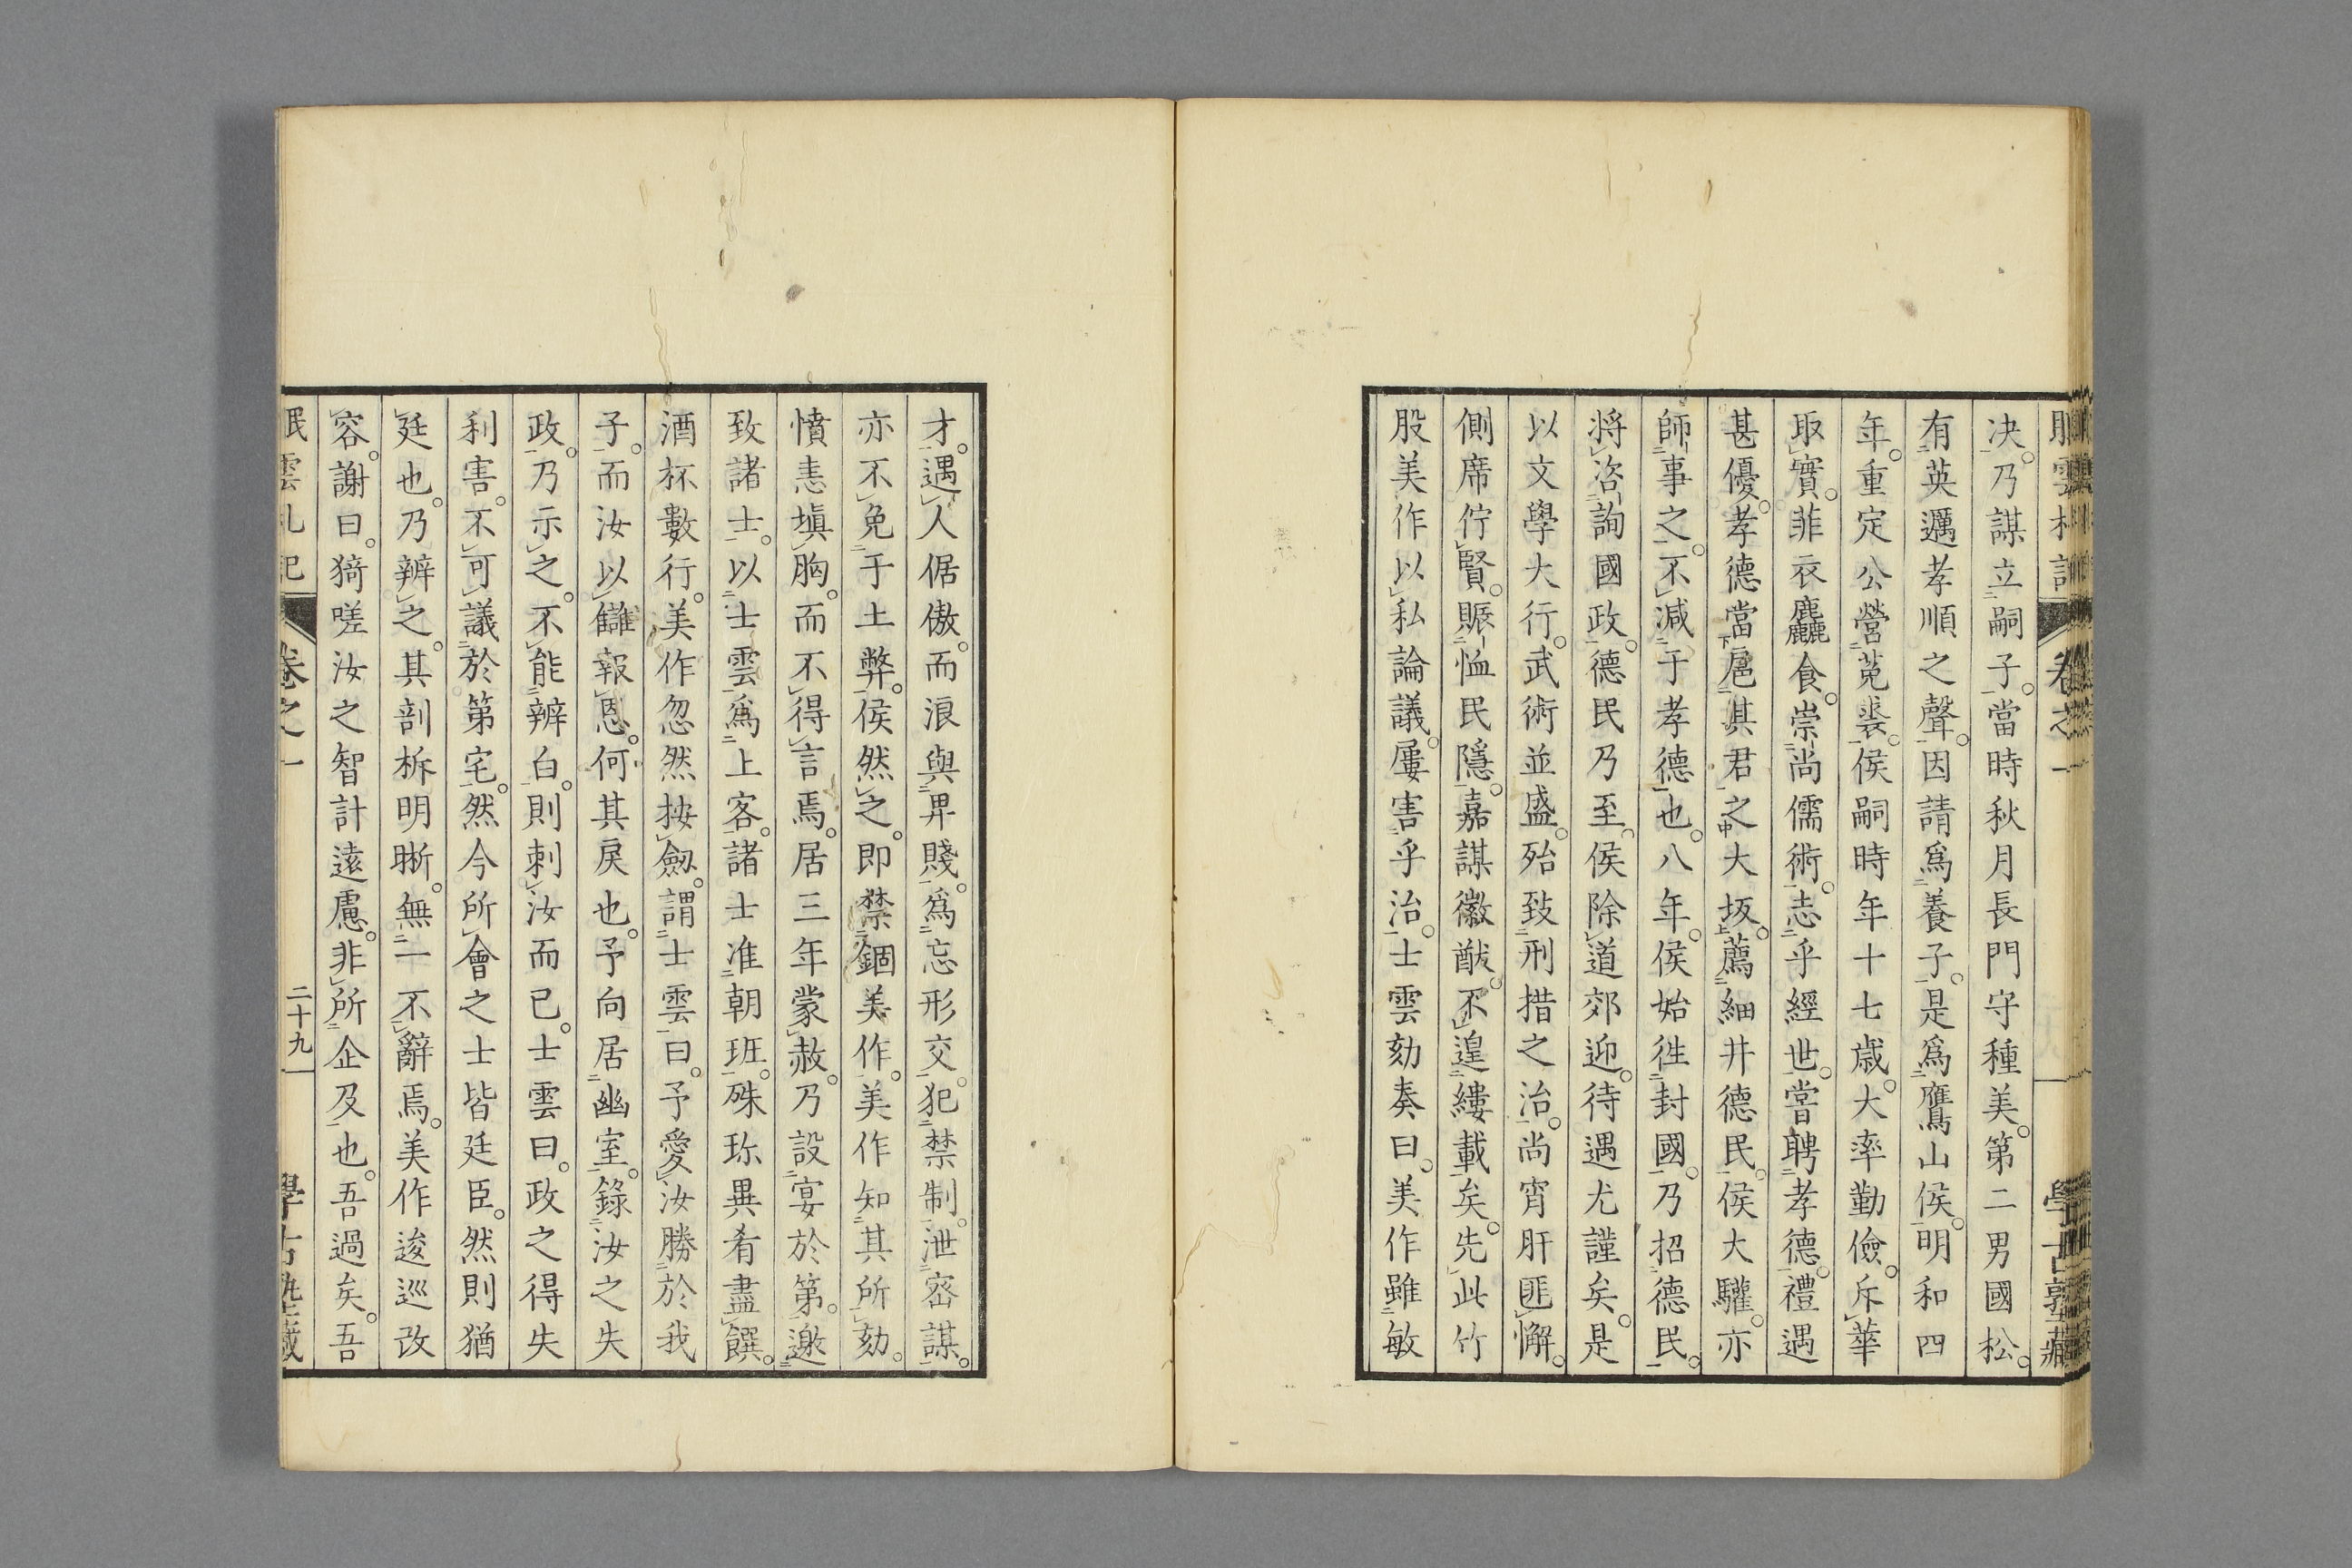 眠雲札記 卷之一 學古塾藏
决。乃謀立嗣子。當時秋月長門守種美。第二男國松。
有英邁孝順之聲。因請爲養子。是爲鷹山侯。明和四
年。重定公營菟裘。侯嗣時年十七歳。大率勤儉。斥華
取實。菲衣麤食。崇尚儒術。志乎經世。嘗聘孝德。禮遇
甚優。孝德當扈其君之大坂。薦細井德民。侯大驩。亦
師事之。不減于孝德也。八年。侯始徃封國。乃招德民。
將咨詢國政。德民乃至。侯除道郊迎。待遇尤謹矣。是
以文學大行。武術並盛。殆致刑措之治。尚宵肝匪懈。
側席佇賢。賑恤民隱。嘉謀徽猷。不遑縷載矣。先此竹
股美作以私論議。屢害乎治。士雲劾奏曰。美作雖敏
才。遇人倨傲。而浪與卑賤。爲忘形交。犯禁制。泄密謀。
亦不免于土弊。侯然之。即禁錮美作。美作知其所劾。
憤恚塡胸。而不得言焉。居三年。蒙赦。乃設宴於第。邀
致諸士。以士雲爲上客。諸士准朝班。殊珎異肴盡饌。
酒杯數行。美作忽然按劔。謂士雲曰。予愛汝勝於我
子。而汝以讎報恩。何其戻也。予向居幽室。錄汝之失
政。乃示之。不能辨白。則刺汝而已。士雲曰。政之得失
利害。不可議於第宅。然今所會之士皆廷臣。然則猶
廷也。乃辨之。其剖柝明晰。無一不辭焉。美作逡巡改
容。謝曰。猗嗟汝之智計遠慮。非所企及也。吾過矣。吾
眠雲札記 卷之一 二十九 學古塾藏